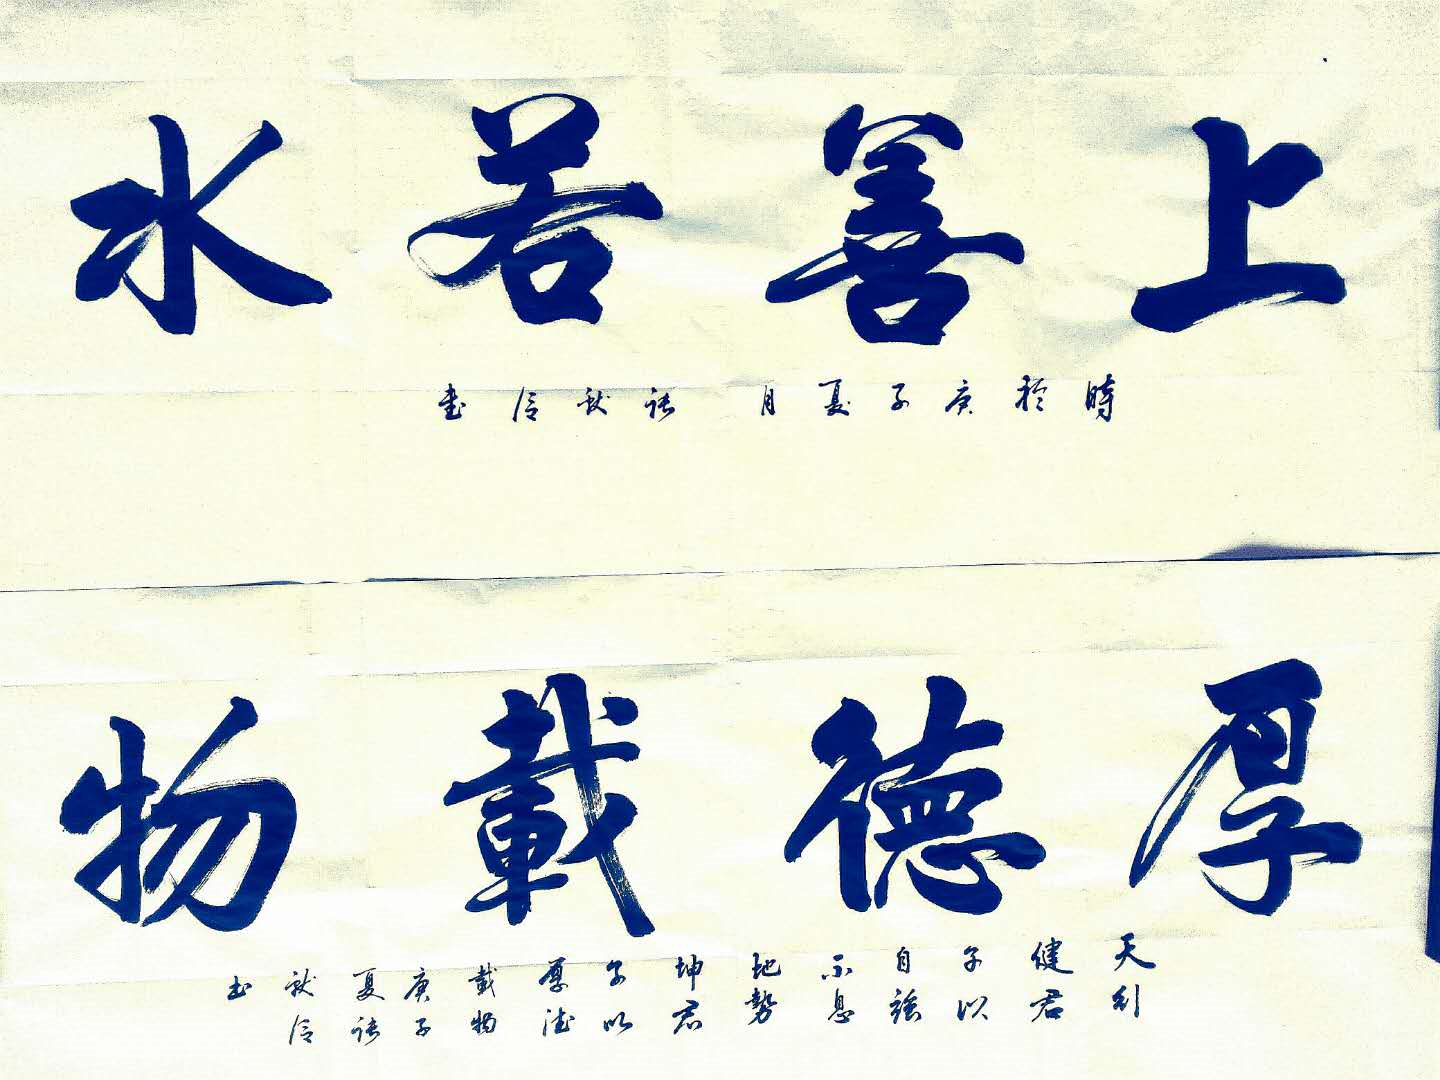 上善若水
時於庚子夏月 秋 書
厚德載物
天行健君子以自強不息地勢坤君子以厚德載物庚子夏 秋 書